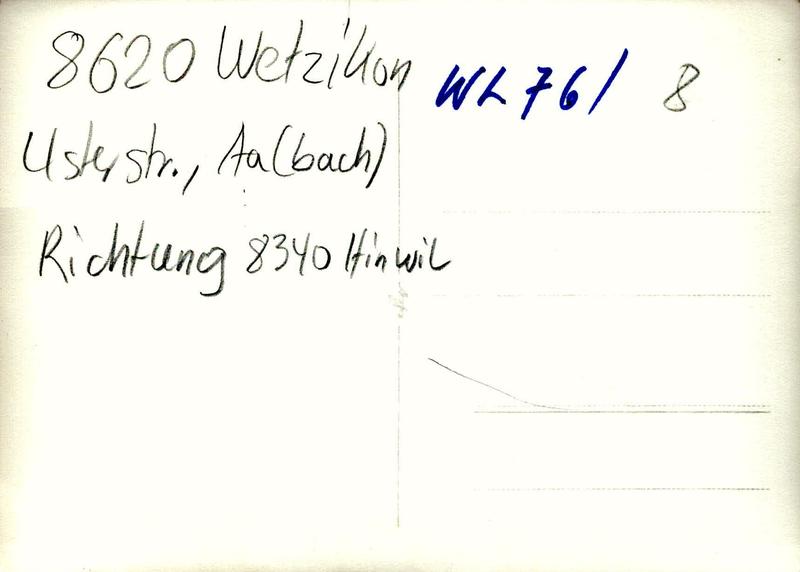 8620 Wetzikon
Usterstr., Aa(bach)
Richtung 8340 Hinwil
WL 76/ 8